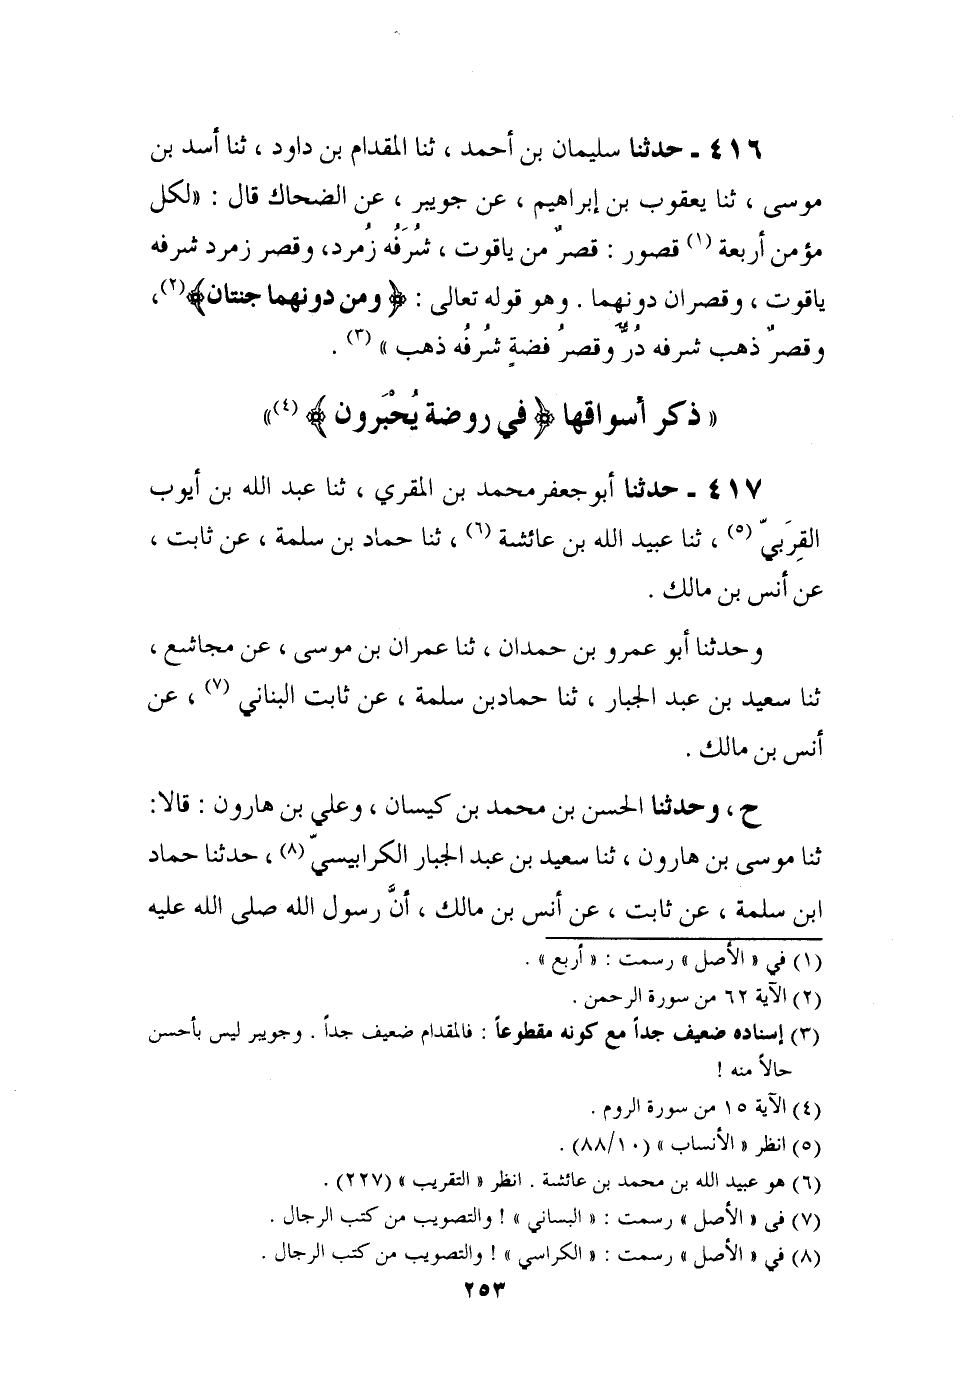 ٤١٦ ـ حدثنا سليمان بن أحمد ، ثنا المقدام بن داود ، ثنا أسد بن
موسى ، ثنا يعقوب بن إبراهيم ، عن جويبر ، عن الضحاك قال : «لكل
مؤمن أربعة (١) قصور : قصرٌ من ياقوت ، شُرَفُه زُمرد، وقصر زمرد شرفه
ياقوت ، وقصران دونهما . وهو قوله تعالى : ﴿ ومن دونهما جنتان﴾(٢)،
وقصرٌ ذهب شرفه دُرٌّ وقصرُ فضةٍ شُرفُه ذهب » (٣) .
« ذكر أسواقها ﴿ في روضة يُحْبَرون ﴾ (٤)»
٤١٧ ـ حدثنا أبوجعفرمحمد بن المقري ، ثنا عبد الله بن أيوب
القِرَبيّ (٥) ، ثنا عبيد الله بن عائشة (٦) ، ثنا حماد بن سلمة ، عن ثابت ،
عن أنس بن مالك .
وحدثنا أبو عمرو بن حمدان ، ثنا عمران بن موسى ، عن مجاشع ،
ثنا سعيد بن عبد الجبار ، ثنا حمادبن سلمة ، عن ثابت البناني (٧) ، عن
أنس بن مالك .
ح ، وحدثنا الحسن بن محمد بن كيسان ، وعلي بن هارون : قالا:
ثنا موسى بن هارون ، ثنا سعيد بن عبد الجبار الكرابيسيّ (٨) ، حدثنا حماد
ابن سلمة ، عن ثابت ، عن أنس بن مالك ، أنَّ رسول الله صلى الله عليه
(١) في « الأصل » رسمت : « أربع » .
(٢) الآية ٦٢ من سورة الرحمن .
(٣) إسناده ضعيف جداً مع كونه مقطوعاً : فالمقدام ضعيف جداً . وجويبر ليس بأحسن
حالاً منه !
(٤) الآية ١٥ من سورة الروم .
(٥) انظر « الأنساب » (٨٨/١٠) .
(٦) هو عبيد الله بن محمد بن عائشة . انظر « التقريب » (٢٢٧) .
(٧) في « الأصل » رسمت : « البساني » ! والتصويب من كتب الرجال .
(٨) في « الأصل » رسمت : « الكراسي » ! والتصويب من كتب الرجال .
٢٥٣